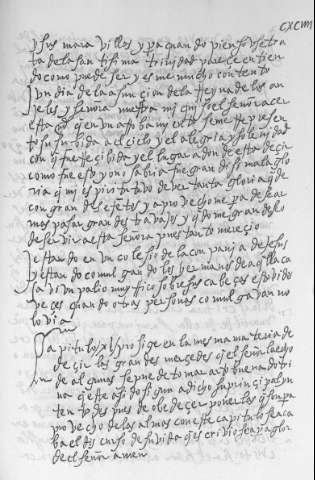 CXCIIII
y sus maravillas y pa quando pienso se tra
ta de la santisima trinidad parece entien
do como puede ser y es me mucho contento
Un dia de la asunçion de la reyna de los an
jeles y señora nuestra me quiso el señor açer
esta merced q en un arrobamiento se me represen
to su subida al cielo y el alegria y solenidad
con q fue reçibida y el lugar adonde esta deçir
como fue esto yo no sabria fue grandisima la glo
ria q mi espiritu tuvo de ver tanta gloria quede
con grandes efetos y aprovecho me para desear
mas pasar grandes trabajos y quedome gran deseo
de servir a esta señora pues tanto mereçio
estando en un colesio de la conpania de jesus
y estando comulgando los hermanos de aquella ca
sa vi un palio muy rrico sobre sus cabeças esto vi dos
veçes quando otras personas comulgavan no
lo via
capitulo xl prosige en la mesma materia de
deçir las grandes merçedes q el señor la echo
de algunas se puede tomar arto buena dotri
na q este a sido sigun a dicho su prinçipal yn
tento despues de obedeçer poner las q son pa
provecho de las almas con este capitulo se aca
ba el discurso de su vida q escrivio sea pa glor
de el señor amen